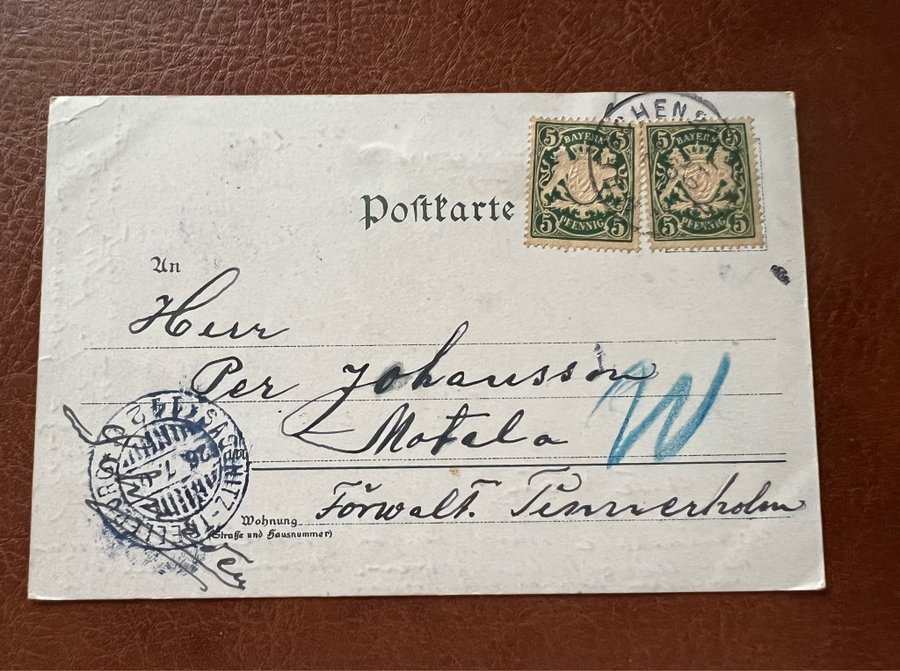 CHENS
5 BAYERN 5
5 PFENNIG 5
5 BAYERN 5
5 PFENNIG 5
Poſtkarte
An
Herr
Per Johansson
Motala
W
Förwalt. Timmerholm
Wohnung
(Straße und Hausnummer)
SASSNITZ-TRELLEBORG
26 7